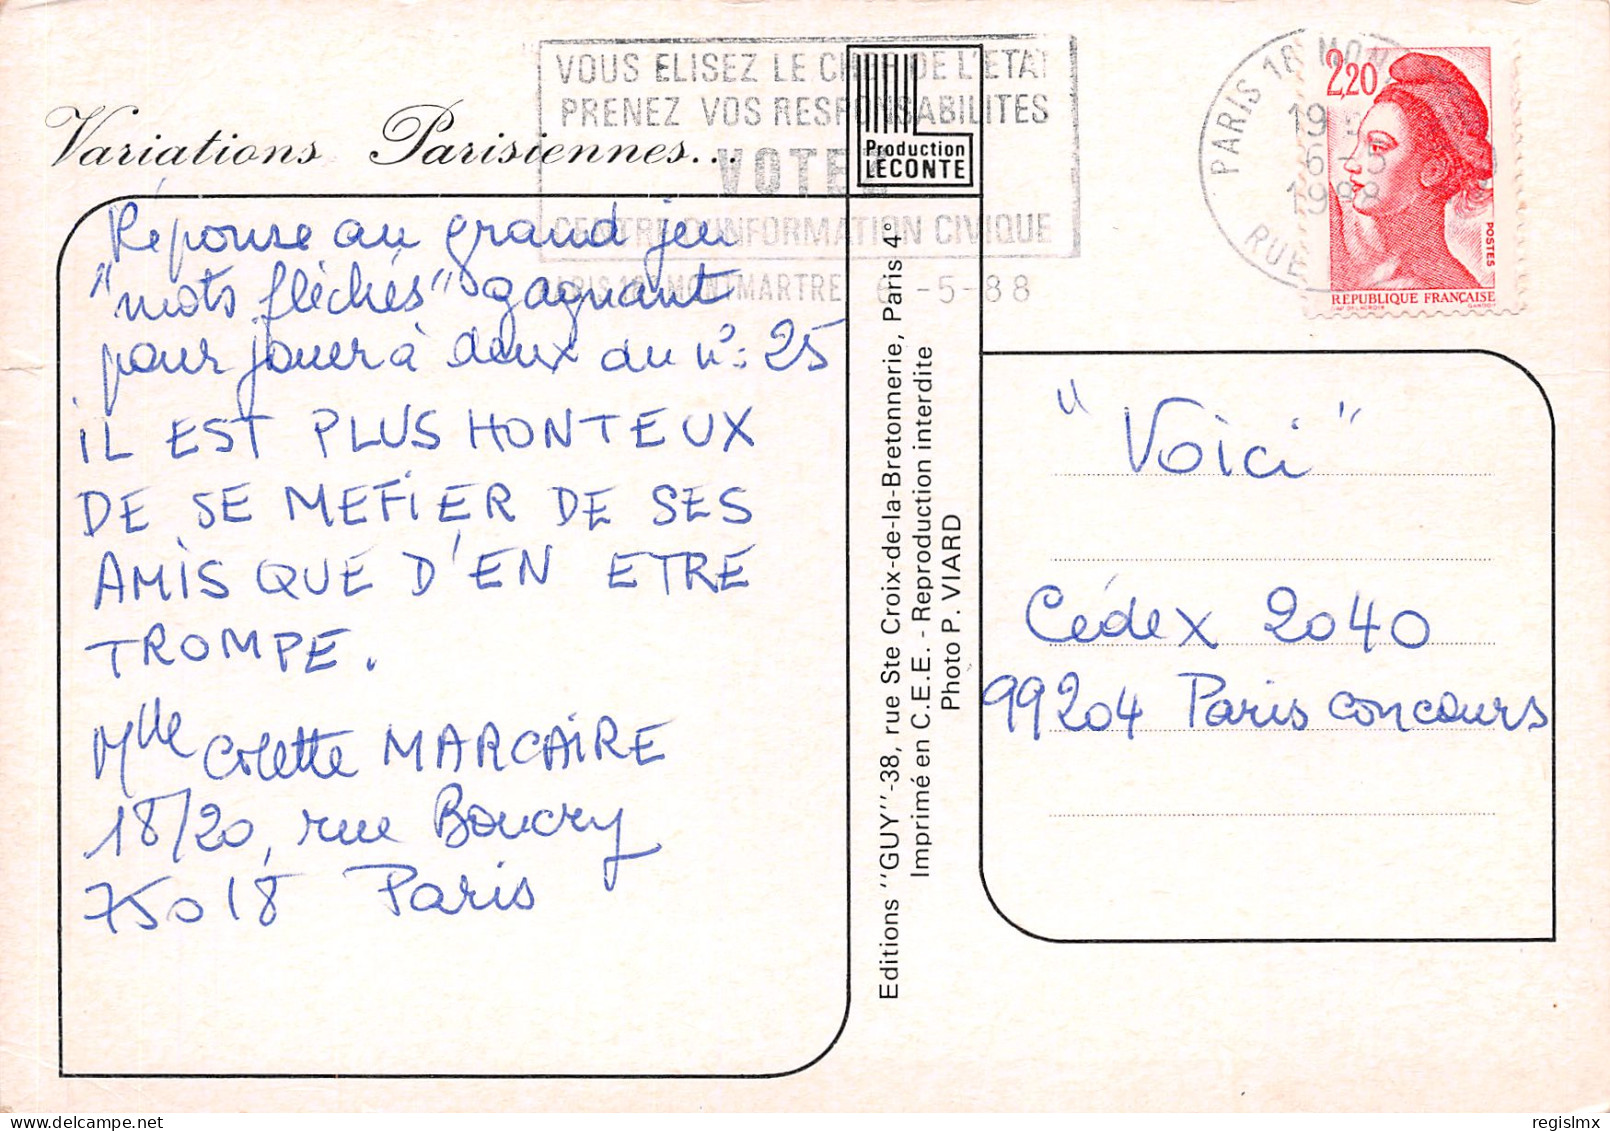 Variations Parisiennes...
VOUS ELISEZ LE CHEF DE L'ETAT
PRENEZ VOS RESPONSABILITES
VOTEZ
CENTRE D'INFORMATION CIVIQUE
PARIS 18 MONTMARTRE 6 -5-88
Production
LECONTE
PARIS 18 MON
19
6 -5
1988
RUE
2,20
POSTES
RÉPUBLIQUE FRANÇAISE
Réponse au grand jeu
"mots fléchés" gagnant
pour jouer à deux du n°: 25
IL EST PLUS HONTEUX
DE SE MEFIER DE SES
AMIS QUE D'EN ETRE
TROMPE.
Mlle Colette MARCAIRE
18/20, rue Boucry
75018 Paris
Editions "GUY"-38, rue Ste Croix-de-la-Bretonnerie, Paris 4°
Imprimé en C.E.E. - Reproduction interdite
Photo P. VIARD
"Voici"
Cédex 2040
99204 Paris concours
regislmx